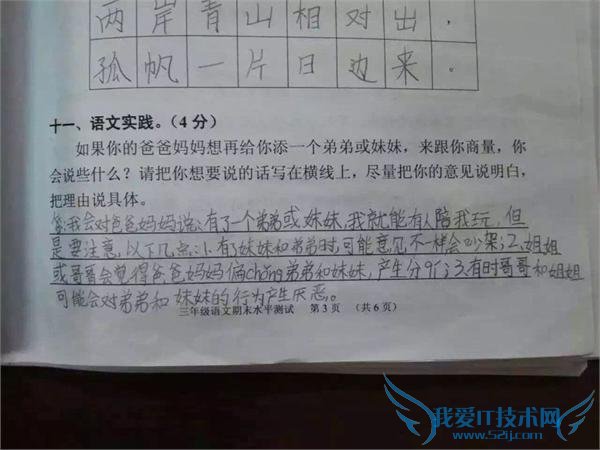 两岸青山相对出，
孤帆一片日边来。
十一、语文实践。（4分）
如果你的爸爸妈妈想再给你添一个弟弟或妹妹，来跟你商量，你
会说些什么？请把你想要说的话写在横线上，尽量把你的意见说明白，
把理由说具体。
答：我会对爸爸妈妈说：有了一个弟弟或妹妹，我就能有人陪我玩，但
是要注意以下几点：1、有了妹妹和弟弟时，可能意见不一样会吵架；2、姐姐
或哥哥会觉得爸爸妈妈偏chǒng弟弟和妹妹，产生分歧；3、有时哥哥和姐姐
可能会对弟弟和妹妹的行为产生厌恶。
三年级语文期末水平测试 第3页 （共6页）
我爱IT技术网
www.52ij.com